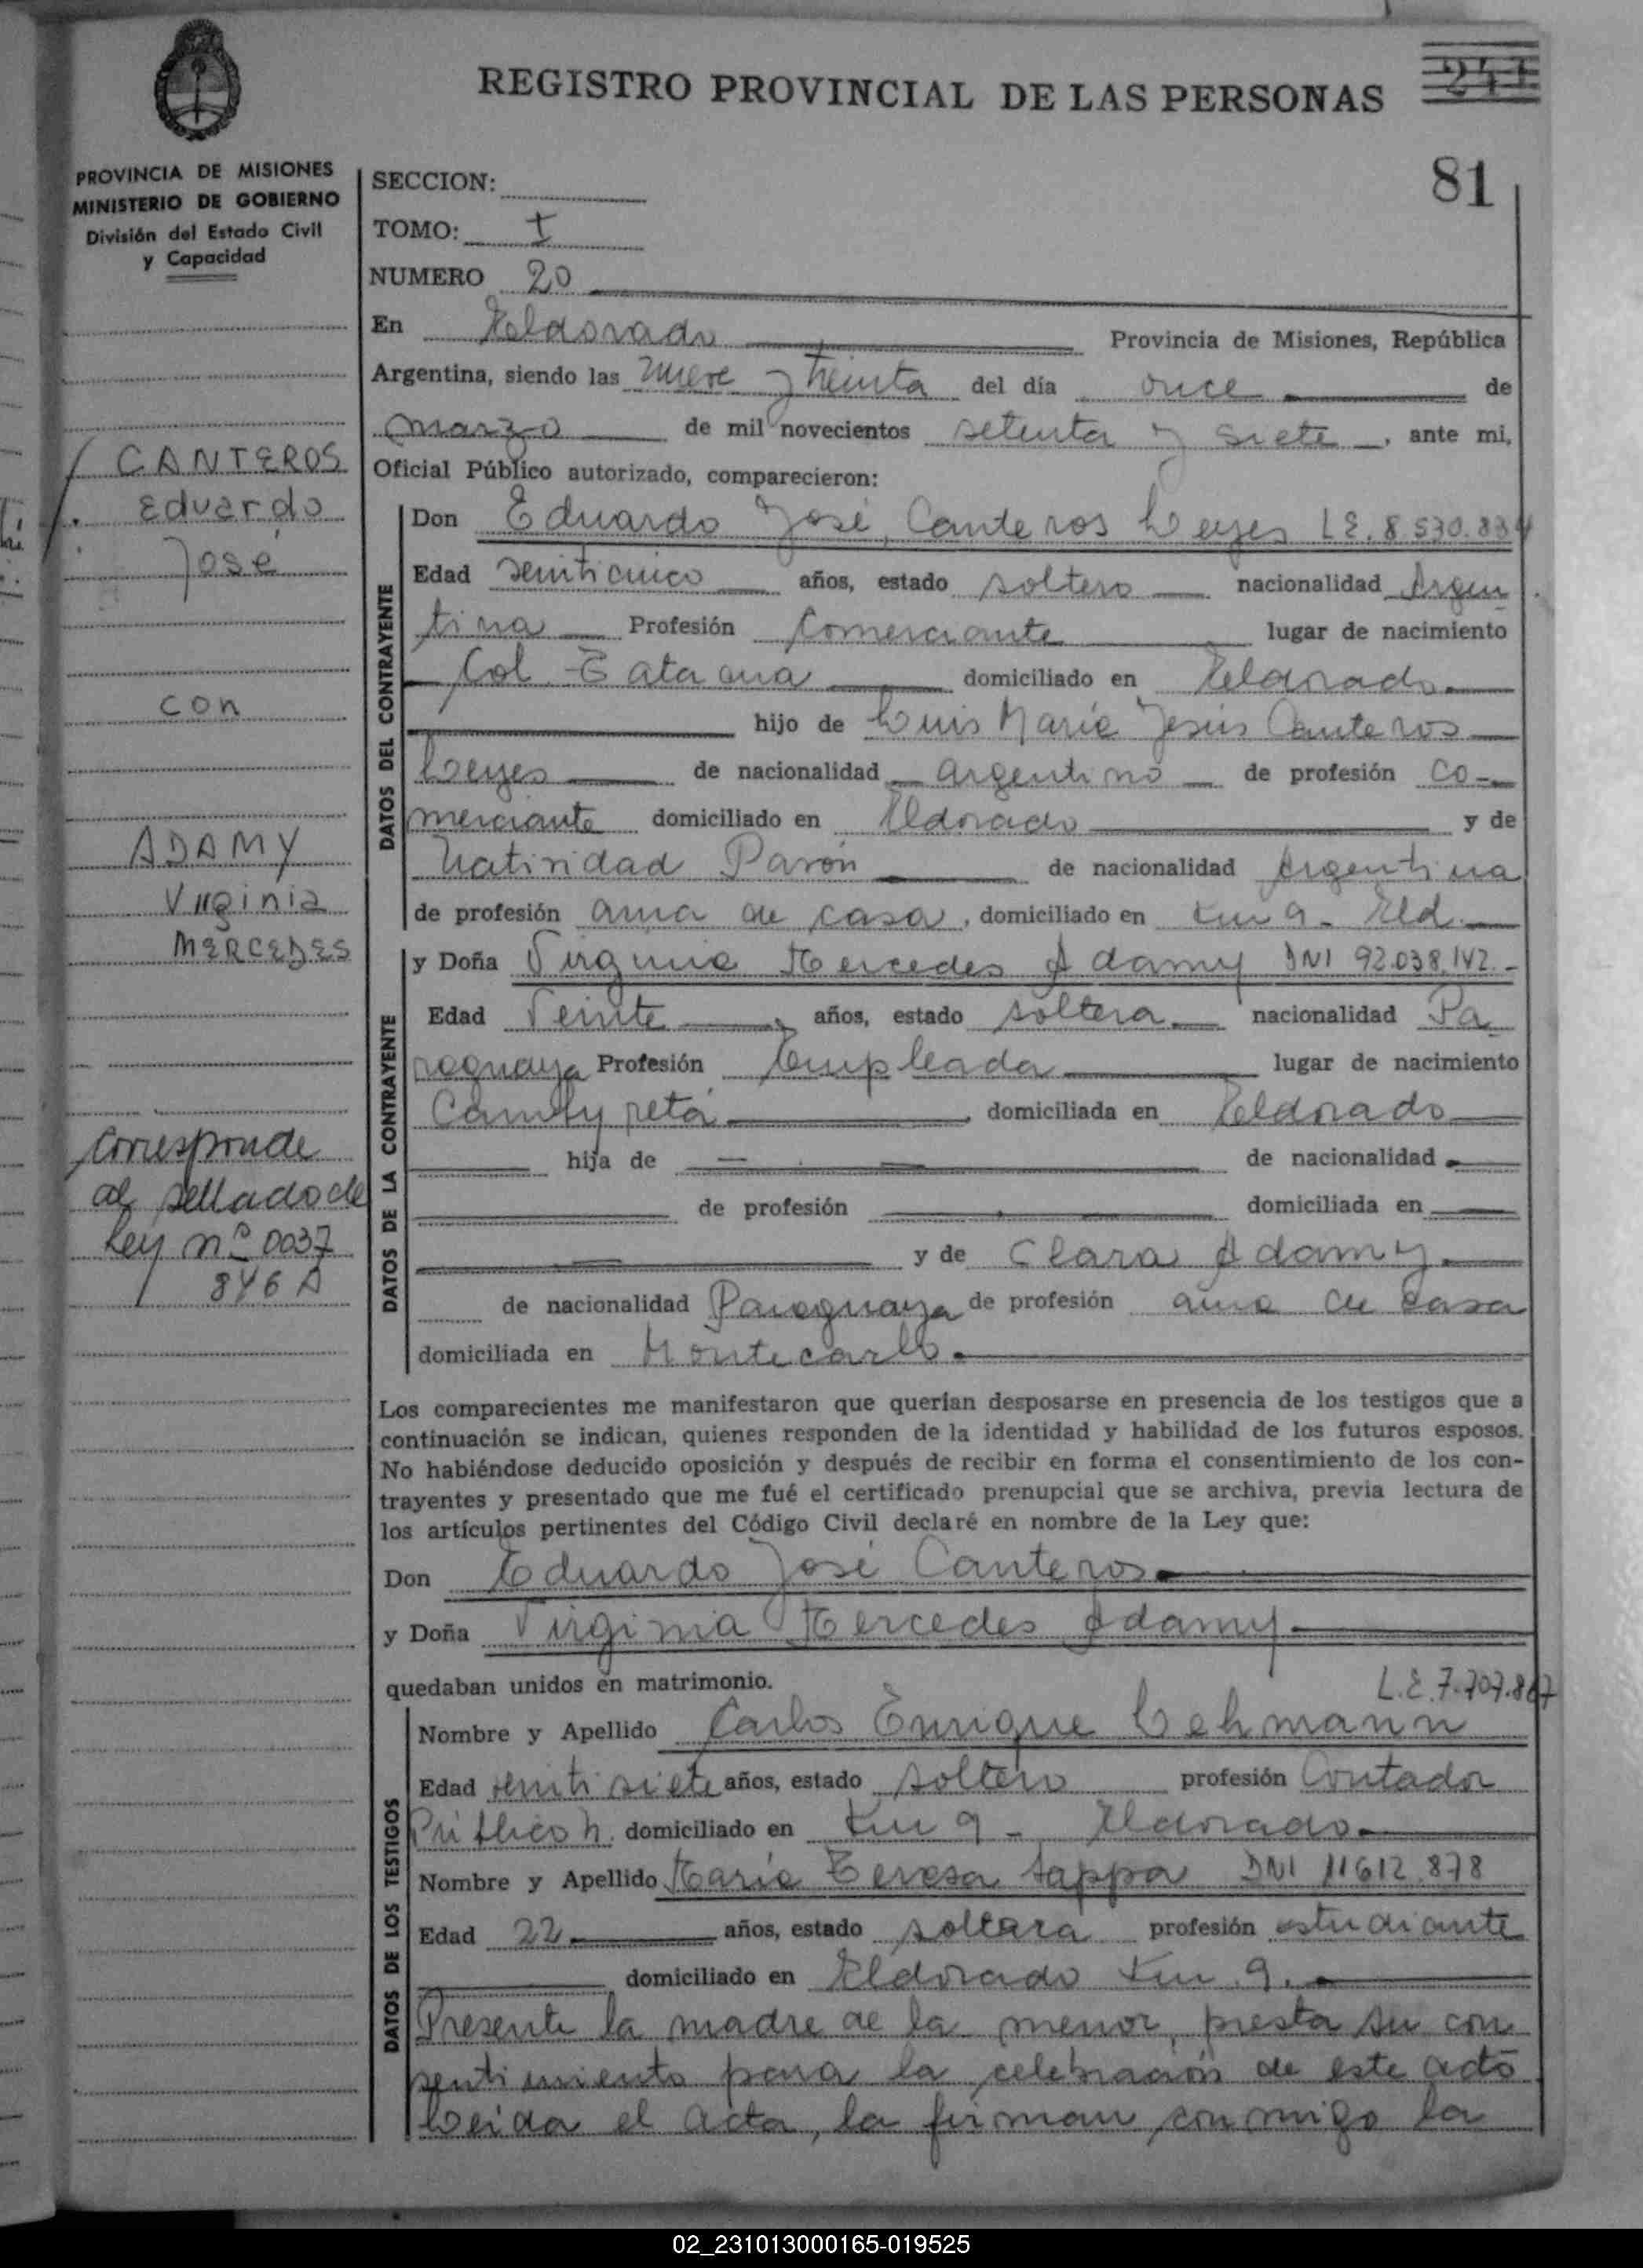 REGISTRO PROVINCIAL DE LAS PERSONAS
241
81
PROVINCIA DE MISIONES
MINISTERIO DE GOBIERNO
División del Estado Civil
y Capacidad
SECCION:
TOMO: I
NUMERO 20
En Eldorado Provincia de Misiones, República
Argentina, siendo las nueve y treinta del día once de
marzo de mil novecientos setenta y siete, ante mi,
Oficial Público autorizado, comparecieron:
CANTEROS
Eduardo
José
con
ADAMY
Virginia
MERCEDES
Corresponde
al sellado de
Ley nº 0037
846 A
DATOS DEL CONTRAYENTE
Don Eduardo José Canteros Leyes LE. 8.530.834
Edad veinticinco años, estado soltero nacionalidad Argen
tina Profesión Comerciante lugar de nacimiento
Col. domiciliado en Eldorado
hijo de Luis María Jesús Canteros
Leyes de nacionalidad argentino de profesión co-
merciante domiciliado en Eldorado y de
Natividad Pavón de nacionalidad Argentina
de profesión ama de casa, domiciliado en km 9 - Eld.
DATOS DE LA CONTRAYENTE
y Doña Virginia Mercedes Adamy DNI 92.038.142.-
Edad Veinte años, estado soltera nacionalidad Pa
raguaya Profesión Empleada lugar de nacimiento
domiciliada en Eldorado
hija de de nacionalidad
de profesión domiciliada en
y de Clara Adamy
de nacionalidad Paraguaya de profesión ama de casa
domiciliada en Montecarlo.
Los comparecientes me manifestaron que querían desposarse en presencia de los testigos que a
continuación se indican, quienes responden de la identidad y habilidad de los futuros esposos.
No habiéndose deducido oposición y después de recibir en forma el consentimiento de los con-
trayentes y presentado que me fué el certificado prenupcial que se archiva, previa lectura de
los artículos pertinentes del Código Civil declaré en nombre de la Ley que:
Don Eduardo José Canteros
y Doña Virginia Mercedes Adamy
quedaban unidos en matrimonio.
L.E. 7.707.867
DATOS DE LOS TESTIGOS
Nombre y Apellido Carlos Enrique Lehmann
Edad veintisiete años, estado soltero profesión Contador
Público N. domiciliado en Km 9 - Eldorado
Nombre y Apellido María Teresa Sappa DNI 11612.878
Edad 22 años, estado soltera profesión estudiante
domiciliado en Eldorado Km. 9.
Presente la madre de la menor, presta su con
sentimiento para la celebración de este acto
Leida el acta, la firman conmigo la
02_231013000165-019525